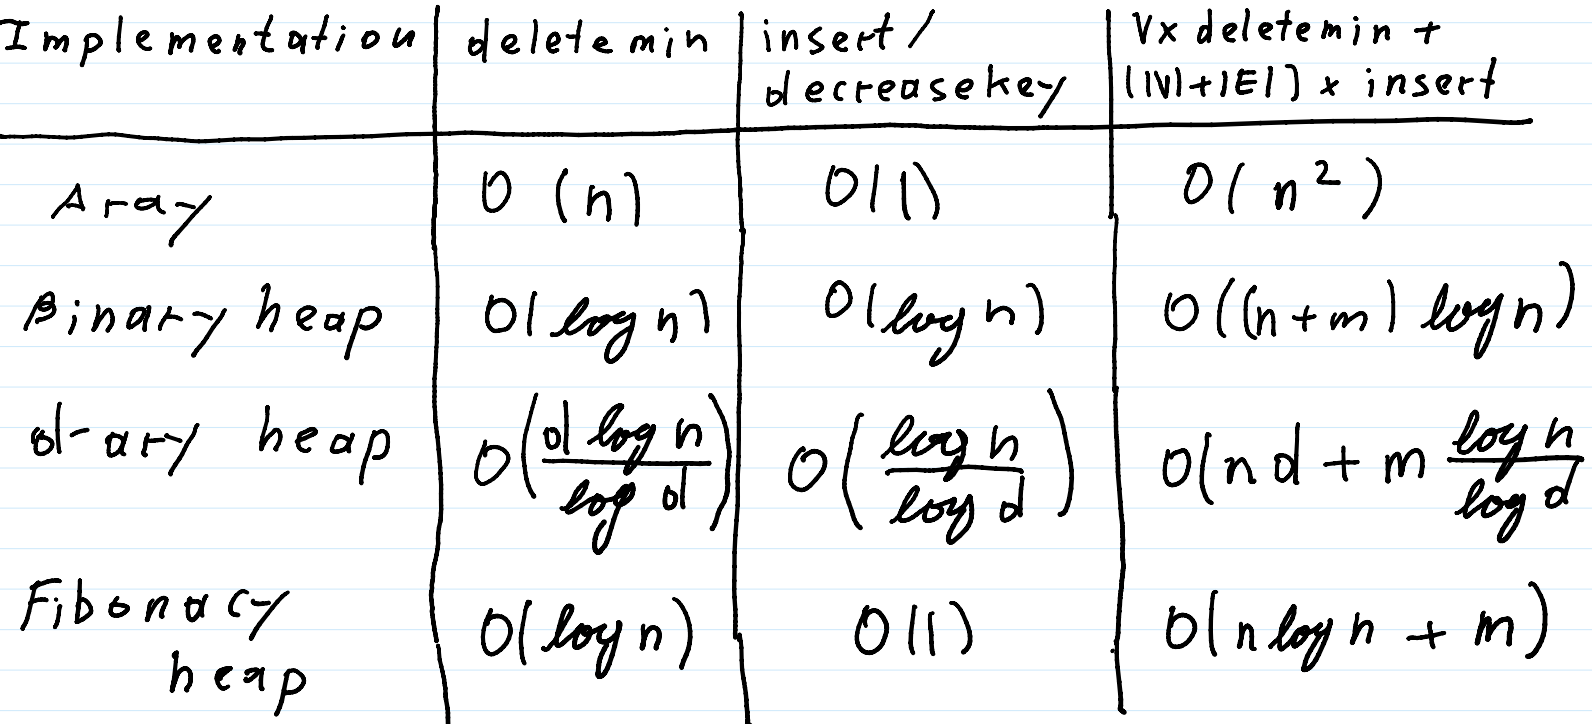 Implementation deletemin insert/ Vx deletemin +
decreasekey (|V|+|E|) x insert
Aray O (n) O(1) O( n² )
Binary heap O(log n) O(log n) O((n+m) log n)
d-ary heap O(d log n / log d) O(log n / log d) O(nd + m log n / log d
Fibonacy O(log n) O(1) O(n log n + m)
heap